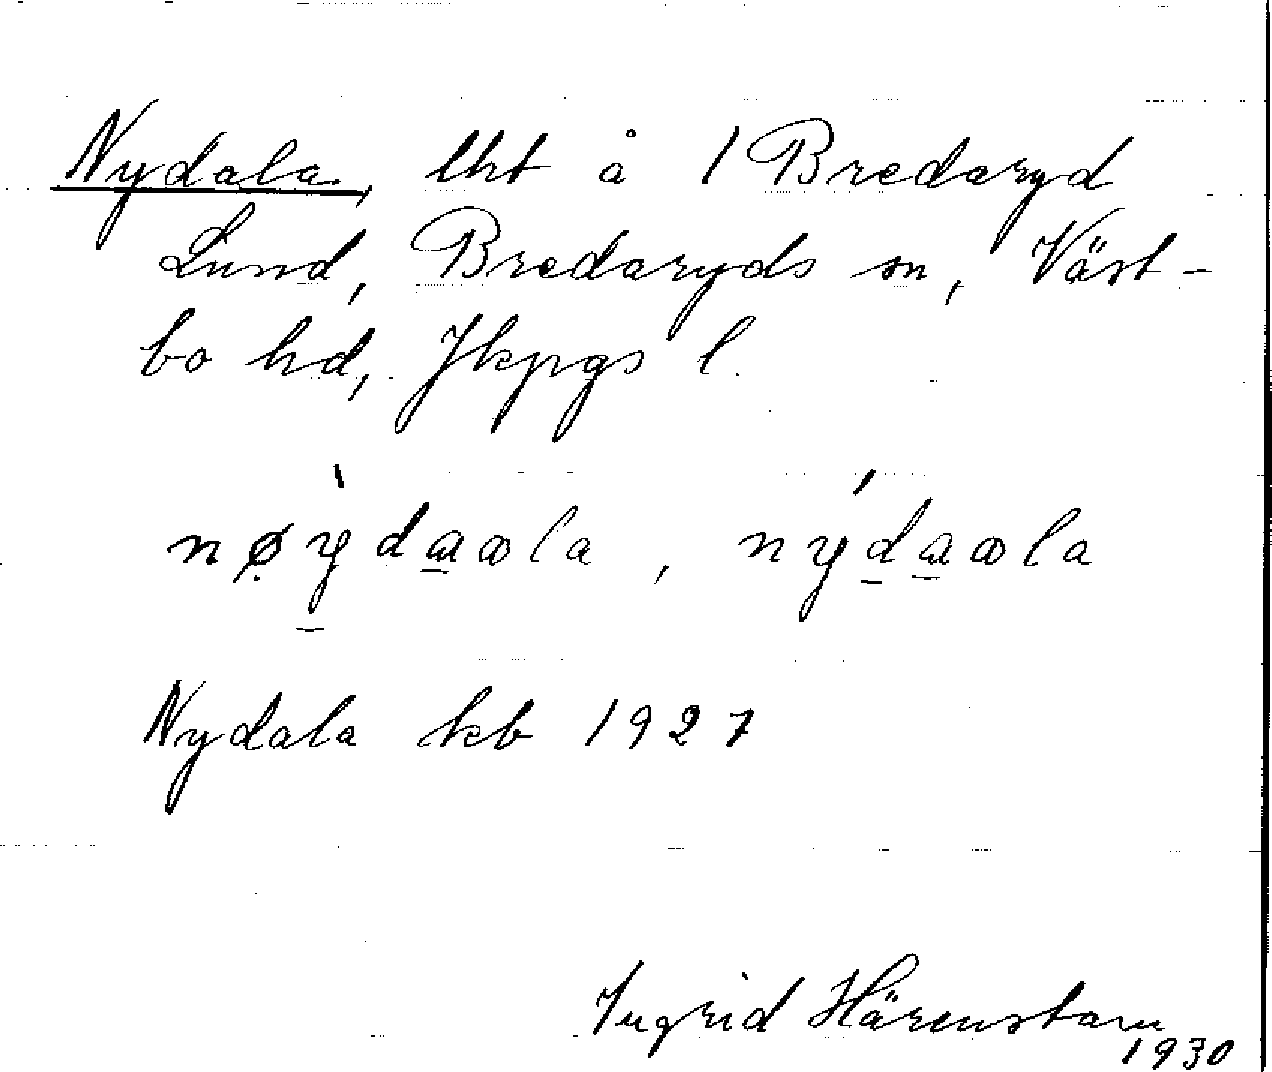 Nydala, lht å 1 Bredaryd
Lund, Bredaryds sn, Väst-
bo hd, Jkpgs l.
nø̀ydaωla, nýdaωla
Nydala kb 1927
Ingrid Härenstam
1930